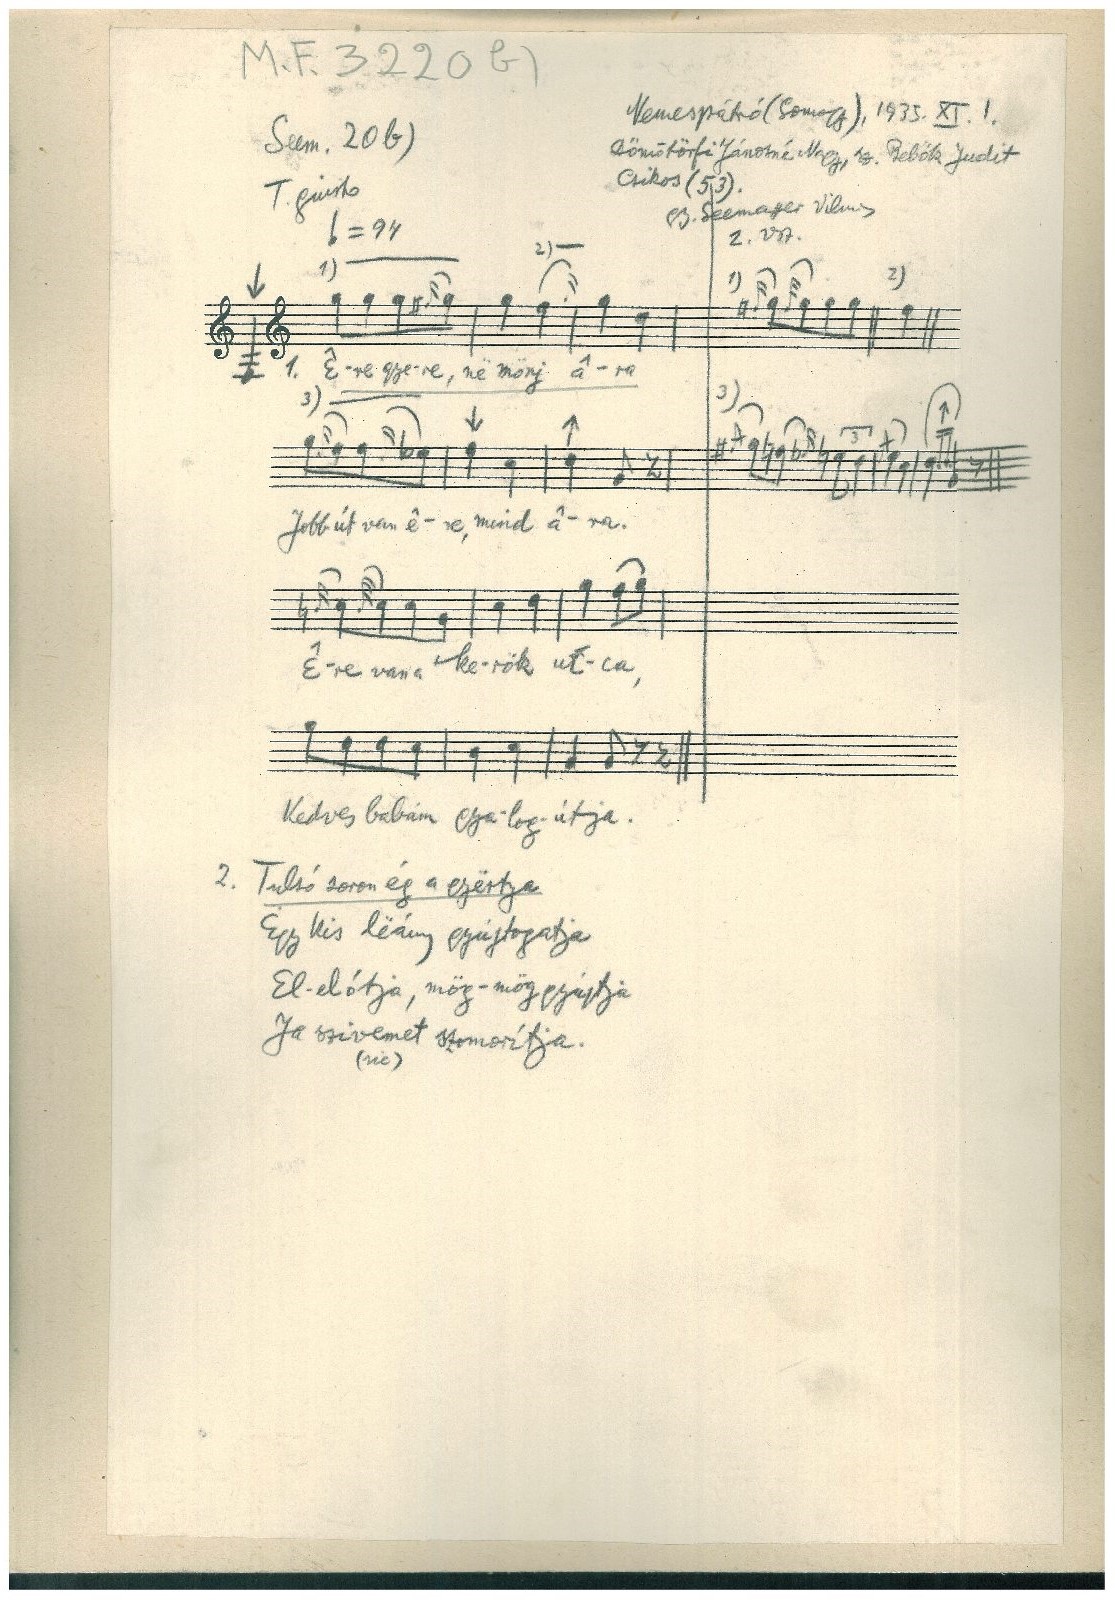 M.F. 3220 b)
Seem. 20 b)
Nemespátró (Somogy), 1935. XI. 1.
Dömötörfi Jánosné Nagy, sz. Bebők Judit
Csikos (53).
T. giusto
gy. Seemayer Vilmos
= 94
2. vsz.
1)
2)
1)
2)
1. Ê-re gye-re, në mönj â-ra
3)
3)
Jobb út van ê-re, mind â-ra.
Ê-re van a ke-rök ut-ca,
Kedves babám gya-log-útja.
2. Tulsó soron ég a gyërtya
Ëgy kis lëány gyújtogatja
El-elótja, mög-mög gyújtja
Ja szivemet szomorítja.
(sic)